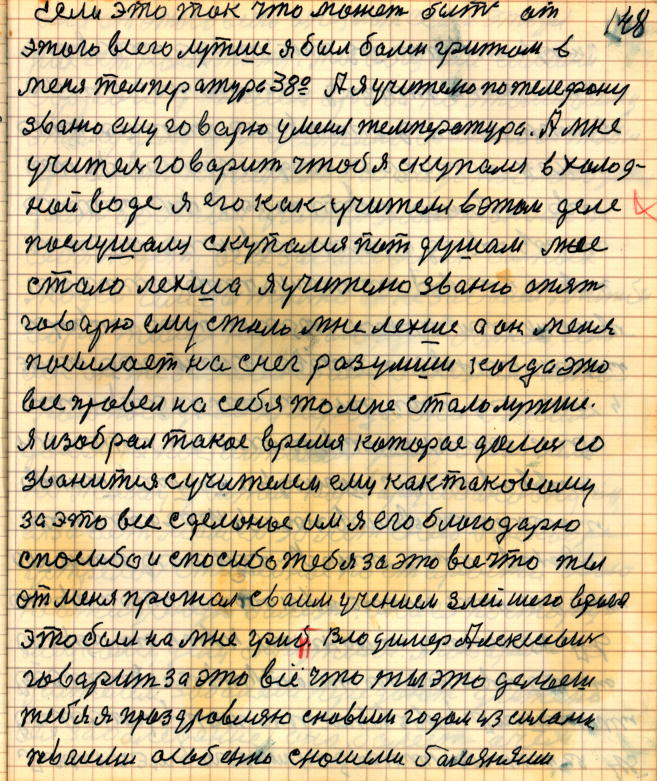 148
если это так что может быть от
этого всего лутше я был болен гриппом в
меня температура 38º А я учителю по телефону
званю ему говарю у меня температура. А мне
учител говарит чтоб я скупался в холод-
ной воде я его как учителя в этом деле
послушался скупался пот душам мне
стало лехша я учителю званю опят
говарю ему стало мне лехше а он меня
посылает на снег разумши когда это
все провел на себя то мне стало лутше.
я избрал такое время которое далос со
званится с учителем ему как таковому
за это все сделоное им я его благодарю
спосибо и спосибо тебя за это все что ты
от меня прогнал сваим учением злейшего врага
это был на мне грип. Влодимер Алексеевич
говарит за это всё что ты это делаеш
тебя я праздровляю сновым годом из силами
тваими особенно сношими